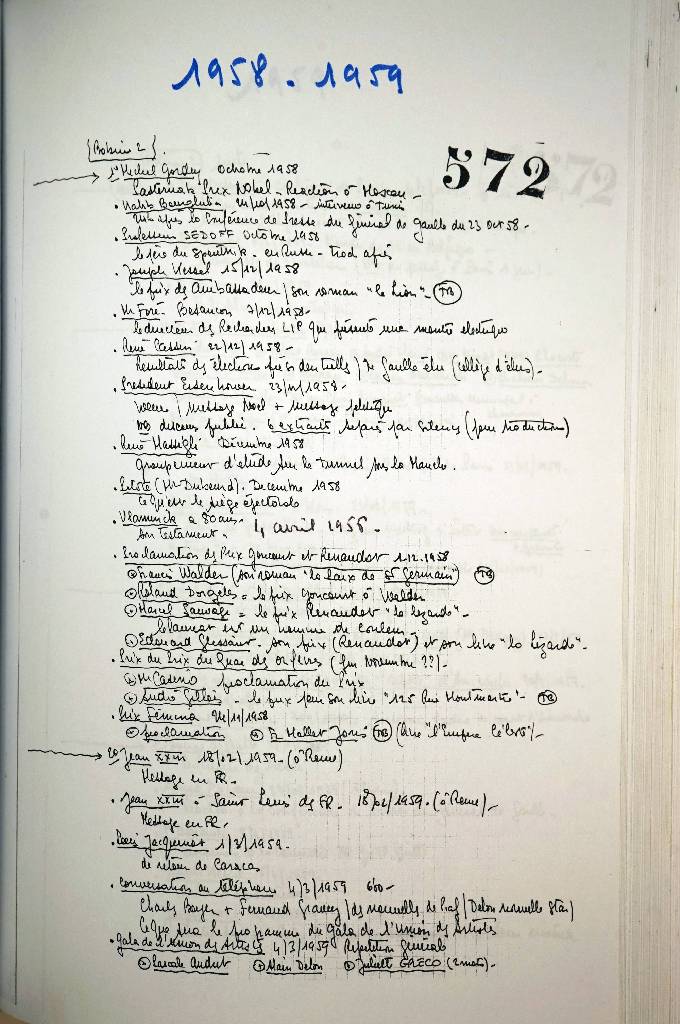 1958 - 1959
572
(Bobine 2).
1° Michel Gordey Octobre 1958
Pasternak Prix Nobel - Réaction à Moscou -
. Habib Bourguiba 24/10/1958 - interview à Tunis
24h après la Conférence de Presse du Général de Gaulle du 23 Oct 58 -
. Professeur SEDOFF Octobre 1958
le père du Spoutnik - en Russe - trad après
. Joseph Kessel 15/12/1958
le prix des Ambassadeurs / son roman "le Lion" - TB
. Mr Foré - Besançon 7/12/1958 -
le directeur des Recherches LIP qui présente une montre electrique
. René Cassin 22/12/1958 -
Résultats des élections présidentielles / De Gaulle élu (collège d'élus) -
. President Eisenhower 23/12/1958 -
Voeux / Message Noel + message politique
discours public. 6 extraits séparés par silences (pour traduction)
. René Massigli Décembre 1958
groupement d'étude sur le Tunnel sous la Manche.
. Pilote (Mr Duboard). Decembre 1958
Ce qu'est le siège éjectable
. Vlaminck a 80 ans - 4 avril 1956 -
Son testament -
. Proclamation des Prix Goncourt et Renaudot 1.12.1958
Francis Walder (son roman "la Saux de St Germain") TB
Roland Dorgelès = le prix Goncourt à Walder
Marcel Sauvage = le prix Renaudot "le lézarde" -
le lauréat est un homme de couleur
Edouard Glissant - son prix (Renaudot) et son livre "la lézarde" -
. Prix du Prix du Quai des Orfèvres (fin Novembre ??) -
Mr Casino proclamation du Prix
André Gillois - le prix pour son livre "125 Rue Montmartre" - TB
. Prix Femina 24/11/1958
proclamation F. Mallet Joris TB (livre "l'Empire Céleste") -
2° Jean XXIII 18/02/1959 - (à Rome)
Message en FR -
. Jean XXIII à Saint Louis des FR - 18/02/1959. (à Rome) -
Message en FR -
. Jacquinot 1/3/1959 -
de retour de Caracas
. Conversation au téléphone 4/3/1959
Charles Boyer + Fernand Gravey / des nouvelles de Piaf / Delon nouvelle star /
Ce que sera le programme du Gala de l'Union des Artistes
. Gala de l'Union des Artistes 4/3/1959 Répétition Générale
Pascale Audret Alain Delon Juliette GRECO (2 mots) -